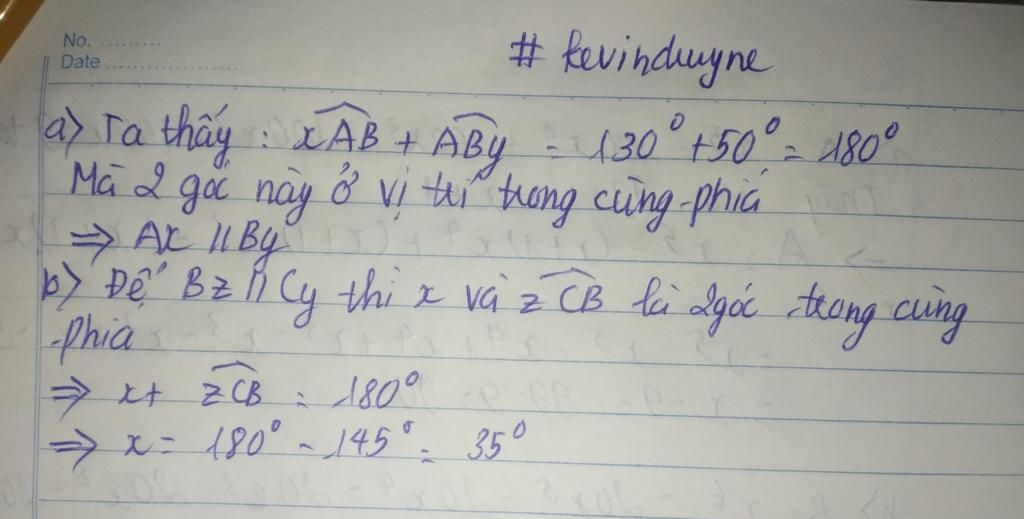 No. ..........
Date ...................
# kevinduyne
a) Ta thấy : xAB + ABy = 130° + 50° = 180°
Mà 2 góc này ở vị trí trong cùng phía
=> Ax // By
b) Để Bz // Cy thì x và zCB là 2 góc trong cùng
phía
=> x + zCB = 180°
=> x = 180° - 145° = 35°